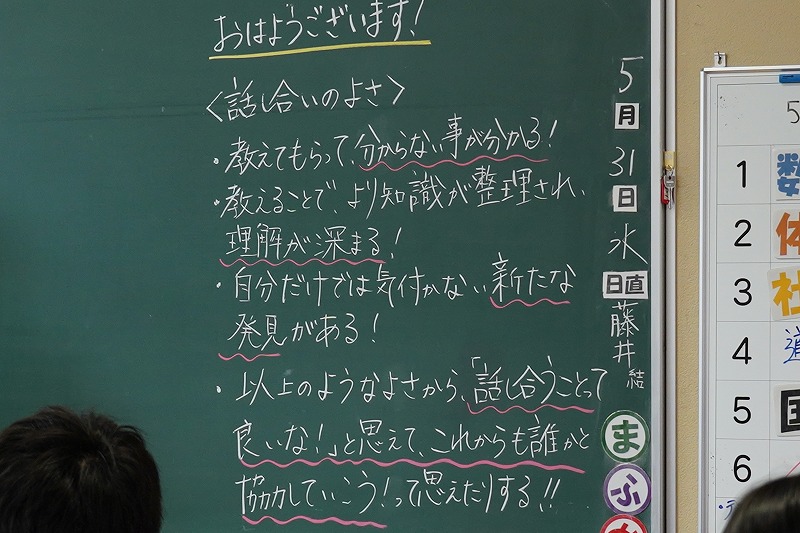 おはようございます!
〈話し合いのよさ〉
・教えてもらって、分からない事が分かる!
・教えることで、より知識が整理され、
理解が深まる!
・自分だけでは気付かない新たな
発見がある!
・以上のようなよさから、「話し合うことって
良いな!」と思えて、これからも誰かと
協力していこう!って思えたりする!!
5月31日水
日直
藤井結
ま
ふ
5
1 数
2 体
3 社
4 道
5 国
6